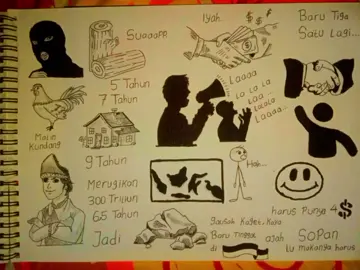 Suaaapp
Iyah..
Baru Tiga
Satu Lagi...
5 Tahun
7 Tahun
Laaaa
La La La
Laa...
LaaLa
Laaaa...
Malin
Kundang
9 Tahun
Hah...
Merugikan
300 Triliun
65 Tahun
harus Punya 4 $
gausah Kaget, Kalo
Jadi
Baru Tinggal
di
ajah
SoPan
lu makanya harus